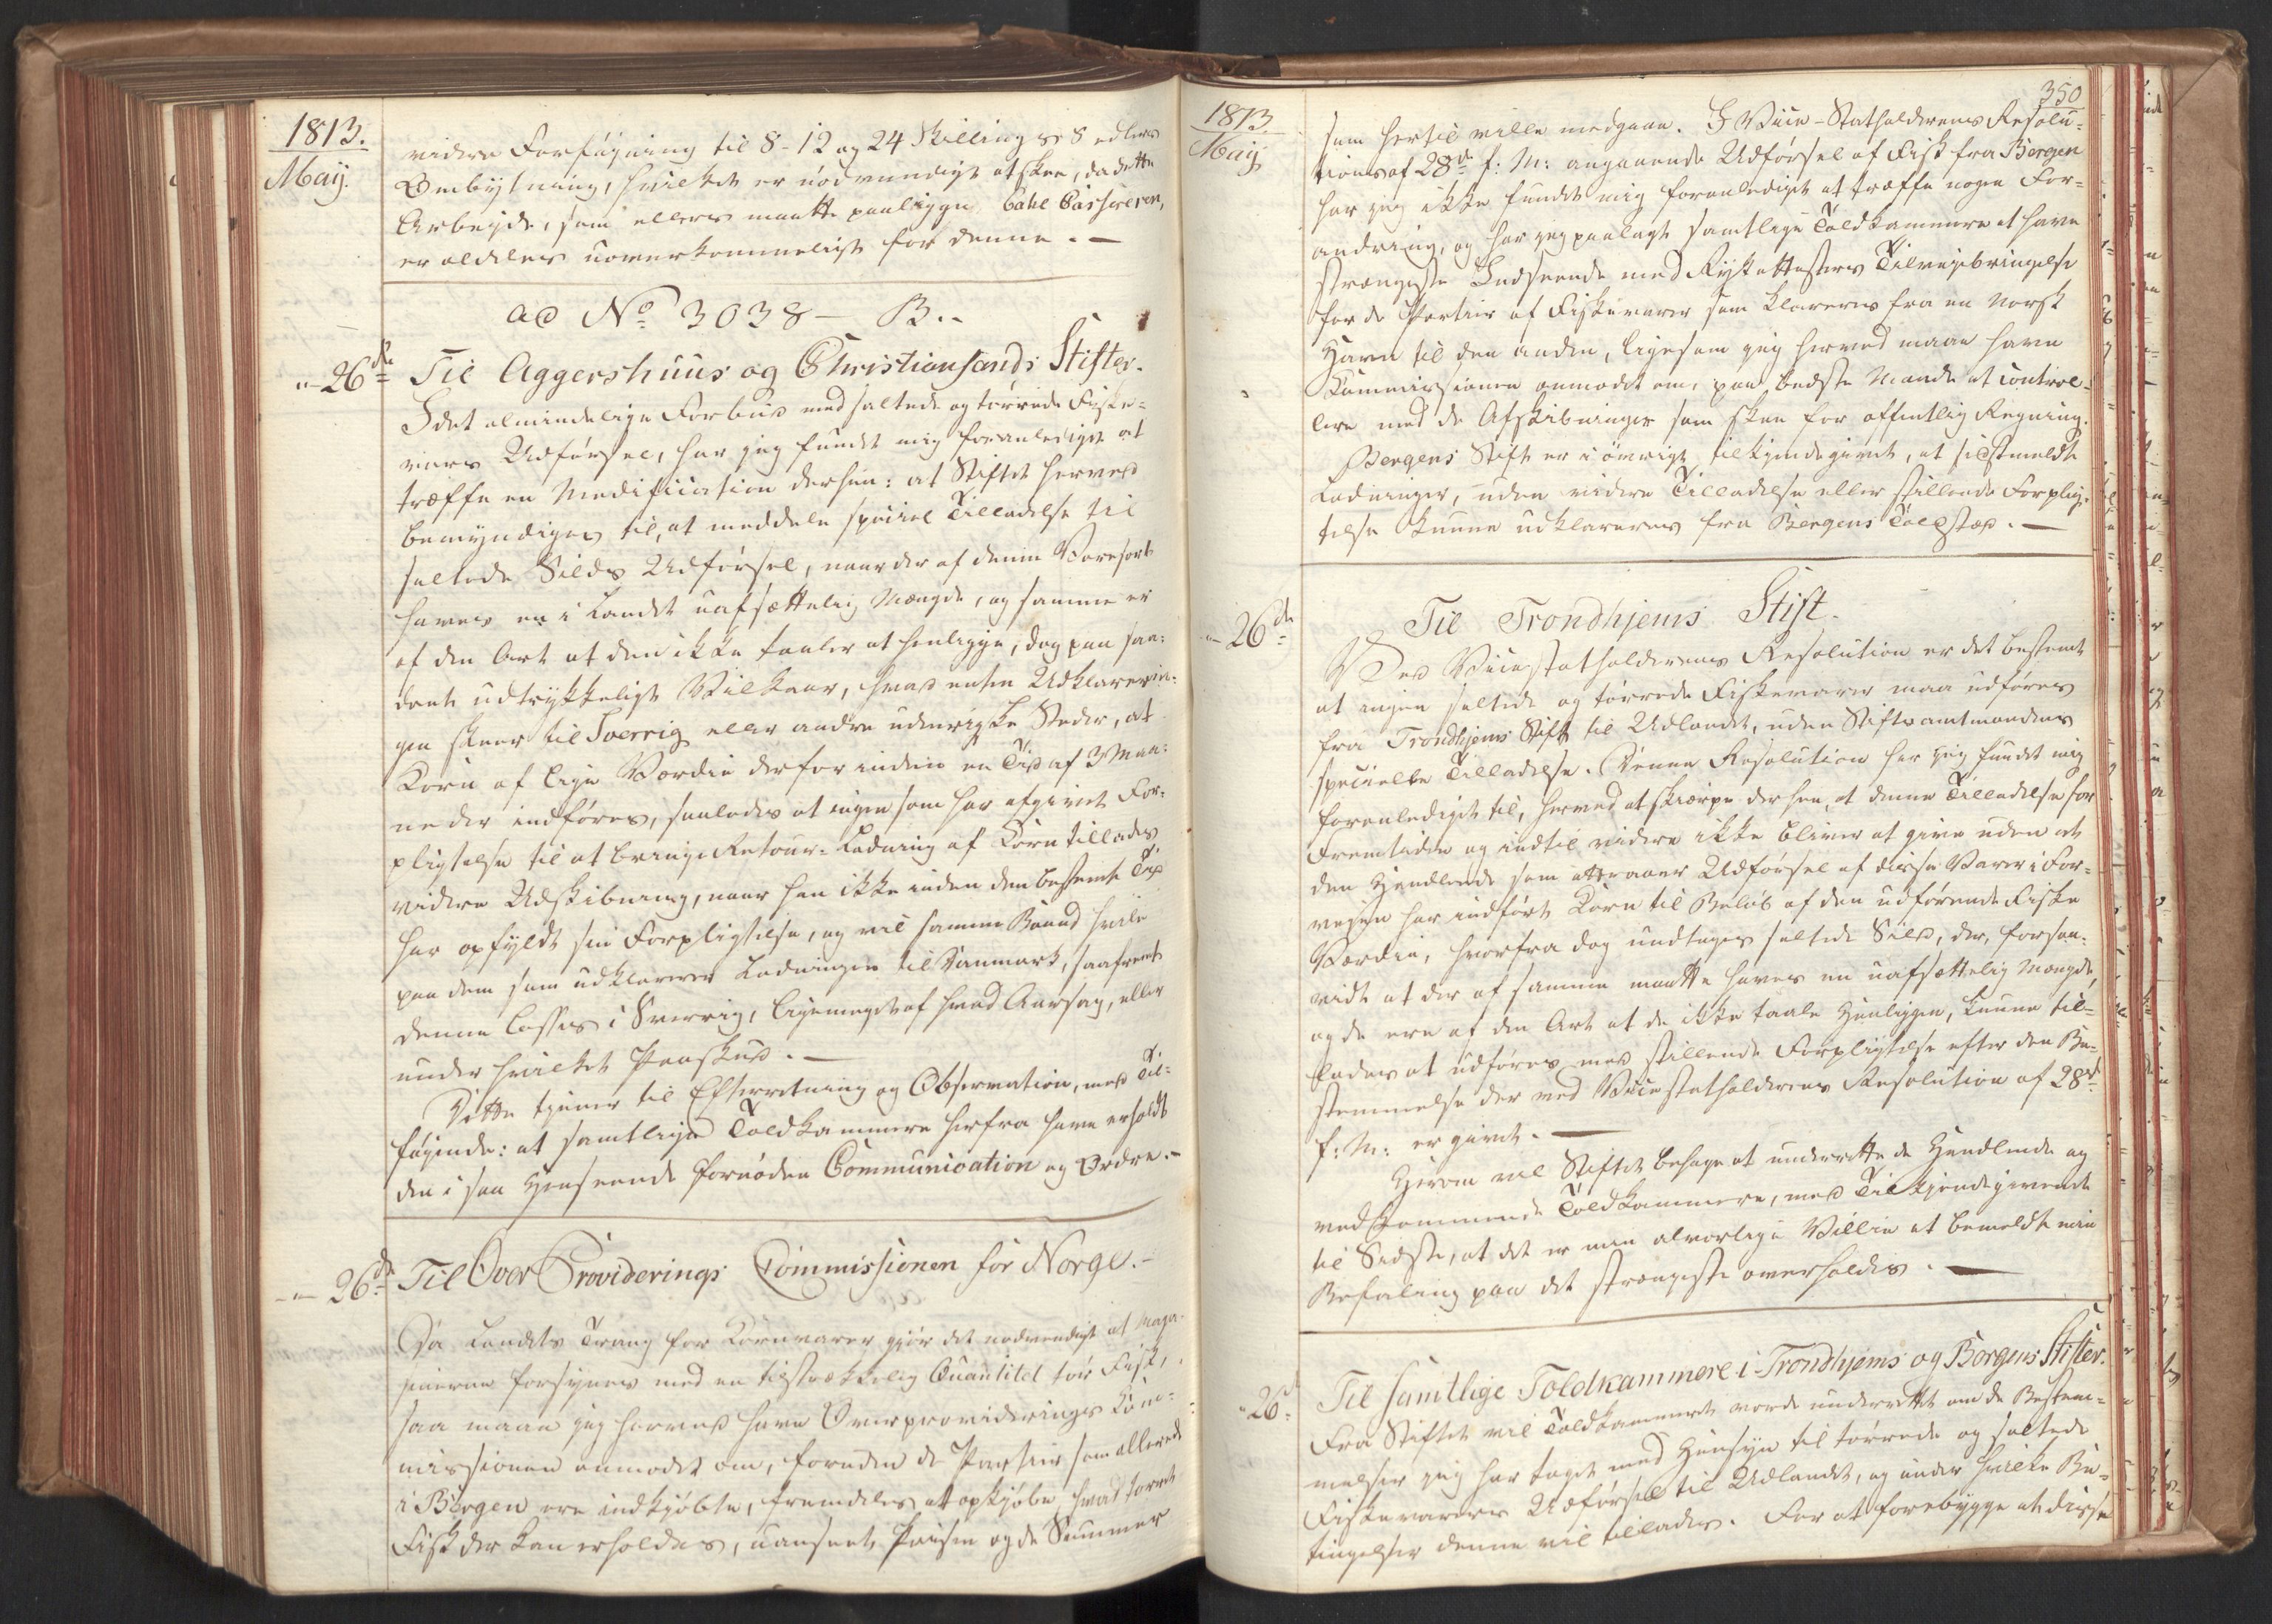 1813.
May.
videre Forføyning til 8- 12 og 24 Skilling s S edlers
Ombytning, hvilket er nødvendigt at skee, da dette
Arbeyde, som ellers maatte paaligge Cahl Casseren,
er aldeles uoverkommeligt for denne. —
ad No 3038 — B..
"- 26de Til Aggershuus og Christiansands Stifter.
I det almindelige Forbud mod saltede og tørrede Fiske-
varers Udførsel, har jeg fundet mig foranlediget at
træffe en Modification derhen: at Stiftet herved
bemyndiges til, at meddele speciel Tilladelse til
saltede Silds Udførsel, naar der af denne Varesort
haves en i Landet uafsættelig Mængde, og samme er
af den Art at den ikke taaler at henligge, dog paa saa-
dant udtrykkeligt Vilkaar, hvad enten Udklarerin-
gen skeer til Sverrig eller andre udenrigske Steder, at
Korn af lige Værdie derfor inden en Tid af 3 Maa-
neder indføres, saaledes at ingen som har afgivet For-
pligtelse til at bringe Retour-Ladning af Korn tillades
videre Udskibning, naar han ikke inden den bestemte Tid
har opfyldt sin Forpligtelse, og vil samme Baand hvile
paa dem som udklarerer Ladninger til Danmark, saafremt
denne losses i Sverrig, ligemeget af hvad Aarsag, eller
under hvilket Paaskud. —
Dette tjener til Efterretning og Observation, med Til-
føyende: at samtlige Toldkammere herfra have erholdt
den i saa Henseende fornødne Communication og Ordre. -
-"- 26de Til Over Providerings Commissionen for Norge. -
Da Landets Trang for Kornvarer gjør det nødvendigt at Maga-
zinerne forsynes med en tilstrækkelig Quantitet tør Fisk,
saa maae jeg herved have Overproviderings Com-
missionen anmodet om, foruden de Partier som allerede
i Bergen ere indkjøbte, fremdeles at opkjøbe hvad tørret
Fisk der kan erholdes, uanseet Prisen og de Summer
350
1813.
May
som hertil ville medgaae. I Vice-Statholderens Resolu-
tion af 28de f: M: angaaende Udførsel af Fisk fra Bergen
har jeg ikke fundet mig foranlediget at træffe nogen For-
andring, og har jeg paalagt samtlige Toldkammere at have
strængeste Indseende med Rykattesters Tilveyebringelse
for de Partier af Fiskevarer som klareres fra en norsk
Havn til den anden, ligesom jeg herved maae have
Commissionen anmodet om, paa bedste Maade at control-
lere med de Afskibninger som skee for offentlig Regning.
Bergens Stift er i øvrigt tilkjendegivet, at sidstmeldte
Ladninger, uden videre Tilladelse eller stillende Forplig-
telse kunne udklareres fra Bergens Toldsted. —
"- 26de Til Trondhjems Stift.
Ved Vicestatholderens Resolution er det bestemt
at ingen saltede og tørrede Fiskevarer maa udføres
fra Trondhjems Stift til Udlandet, uden Stiftsamtmandens
specielle Tilladelse. Denne Resolution har jeg fundet mig
foranlediget til, herved at skærpe derhen, at denne Tilladelse for
Fremtiden og indtil videre ikke bliver at give uden at
den Handlende som attraaer Udførsel af disse Varer i For-
veyen har indført Korn til Beløb af den udførende Fiske
Værdie, hvorfra dog undtages saltede Sild, der, forsaa-
vidt at der af samme maatte haves en uafsættelig Mængde,
og de ere af den Art at de ikke taale Henliggen, kunne til-
lades at udføres mod stillende Forpligtelse efter den Be-
stemmelse der ved Vicestatholderens Resolution af 28de
f: M: er givet. —
Herom vil Stiftet behage at underrette de Handlende og
vedkommende Toldkammere, med Tilkjendegivende
til Sidste, at det er min alvorlige Villie at bemeldte min
Befaling paa det strængeste overholdes. —
"- 26de Til samtlige Toldkammere i Trondhjems og Bergens Stifter.
Fra Stiftet vil Toldkammeret vorde underrettet om de Bestem-
melser jeg har taget med Hensyn til tørrede og saltede
Fiskevarers Udførsel til Udlandet, og under hvilke Be-
tingelser denne vil tillades. For at forebygge at disse